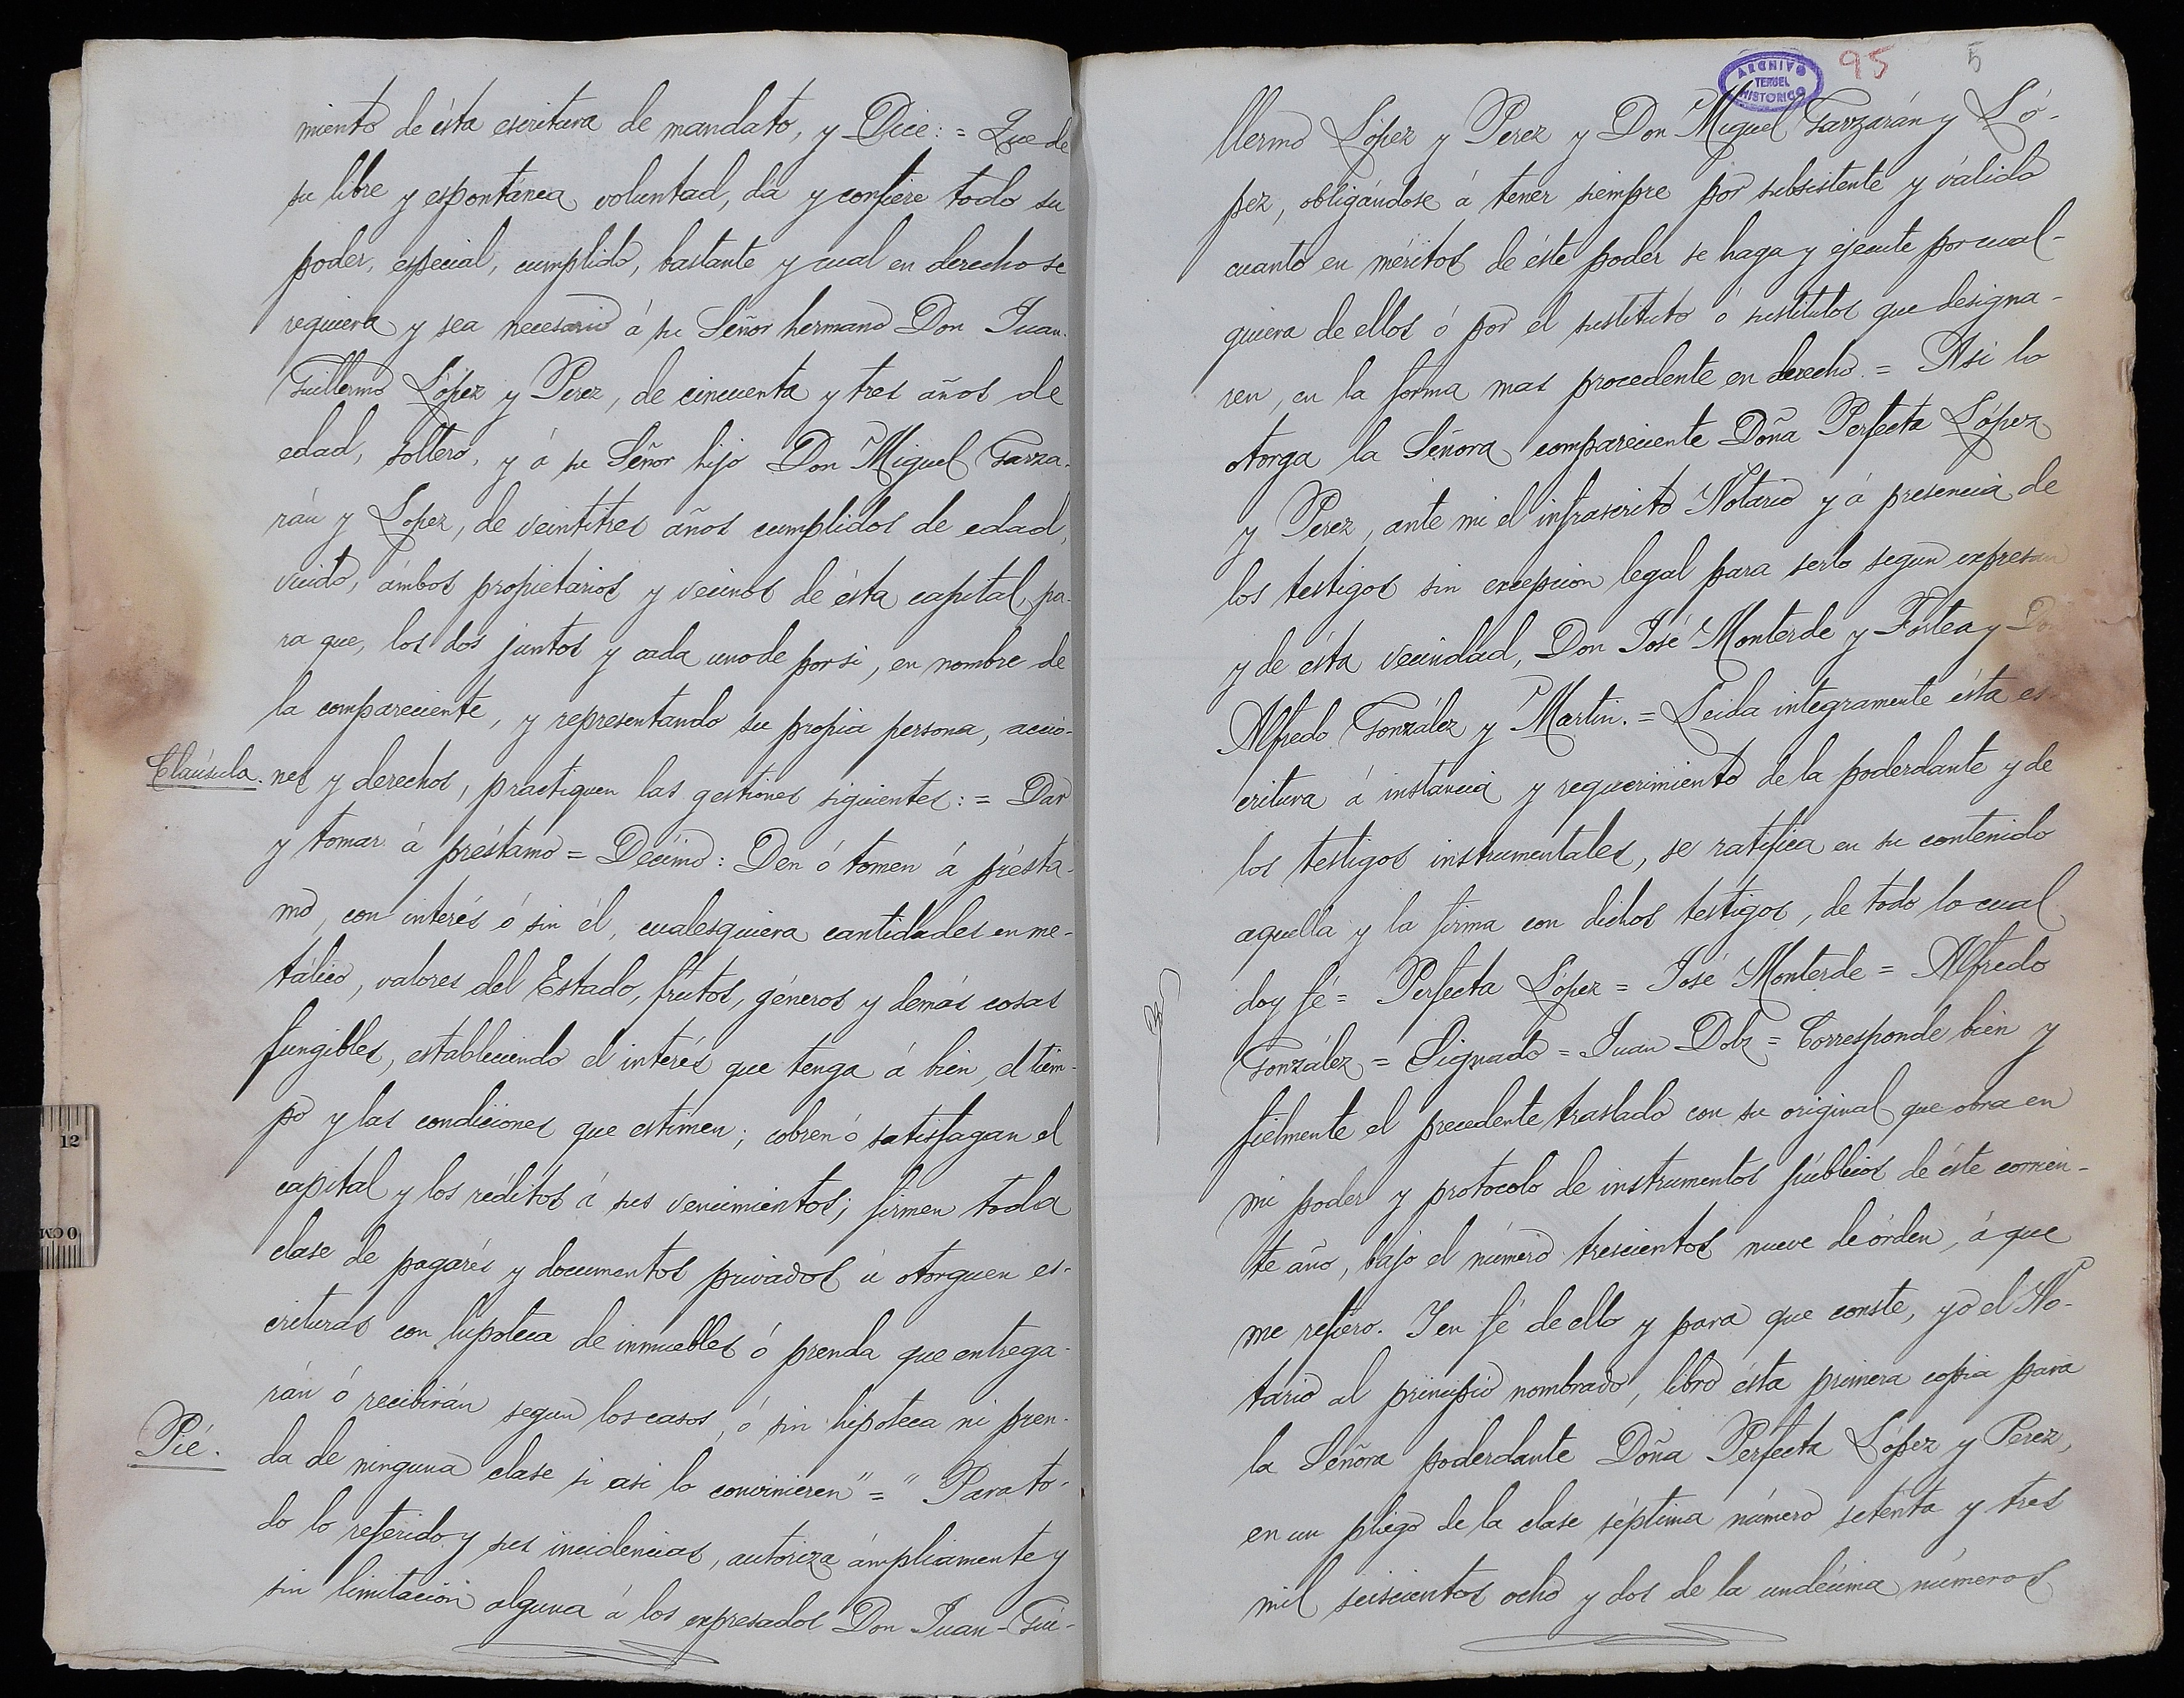 miento de ésta escritura de mandato, y Dice: = Que de
su libre y espontánea voluntad, dá y confiere todo su
poder, especial, cumplido, bastante y cual en derecho se
requiera y sea necesario á su Señor hermano Don Juan
Guillermo López y Perez, de cincuenta y tres años de
edad, soltero, y á su Señor hijo Don Miguel Garza-
rán y Lopez, de veintitres años cumplidos de edad,
viudo, ámbos propietarios y vecinos de ésta capital, pa-
ra que, los dos juntos y cada uno de por si, en nombre de
la compareciente, y representando su propia persona, accio-
Claúsula. nes y derechos, practiquen las gestiones siguientes: = Dar
y tomar á préstamo = Décimo: Den ó tomen á présta-
mo, con interés ó sin él, cualesquiera cantidades en me-
tálico, valores del Estado, frutos, géneros y demás cosas
fungibles, estableciendo el interés que tenga á bien, el tiem-
po y las condiciones que estimen; cobren ó satisfagan el
capital y los réditos á sus vencimientos; firmen toda
clase de pagarés y documentos privados ú otorguen es-
crituras con hipoteca de inmuebles ó prenda que entrega-
rán ó recibirán segun los casos, ó sin hipoteca ni pren-
Pié. da de ninguna clase si asi lo convinieren" = "Para to-
do lo referido y sus incidencias, autoriza ámpliamente y
sin limitación alguna á los expresados Don Juan-Gui-
ARCHIVO
TERUEL
HISTORICO
95
5
llermo López y Perez y Don Miguel Garzarán y Ló-
pez, obligándose á tener siempre por subsistente y válido
cuanto en méritos de éste poder se haga y ejecute por cual-
quiera de ellos ó por el sustituto ó sustitutos que designa-
ren, en la forma mas procedente en derecho. = Asi lo
otorga la Señora compareciente Doña Perfecta López
y Perez, ante mi el infrascrito Notario y á presencia de
los testigos sin excepcion legal para serlo segun expresan
y de ésta vecindad, Don José Monterde y Fortea y Do
Alfredo González y Martin. = Leida integramente ésta es-
critura á instancia y requerimiento de la poderdante y de
los testigos instrumentales, se ratifica en su contenido
aquella y la firma con dichos testigos, de todo lo cual
doy fé = Perfecta López = José Monterde = Alfredo
González = Signado = Juan Dolz = Corresponde bien y
fielmente el precedente traslado con su original que obra en
mi poder y protocolo de instrumentos públicos de éste corrien-
te año, bajo el número trescientos nueve de órden, á que
me refiero. Y en fé de ello y para que conste, yo el No-
tario al principio nombrado, libro ésta primera copia para
la Señora poderdante Doña Perfecta López y Perez,
en un pliego de la clase séptima número setenta y tres
mil seiscientos ocho y dos de la undécima números
12
0 CM